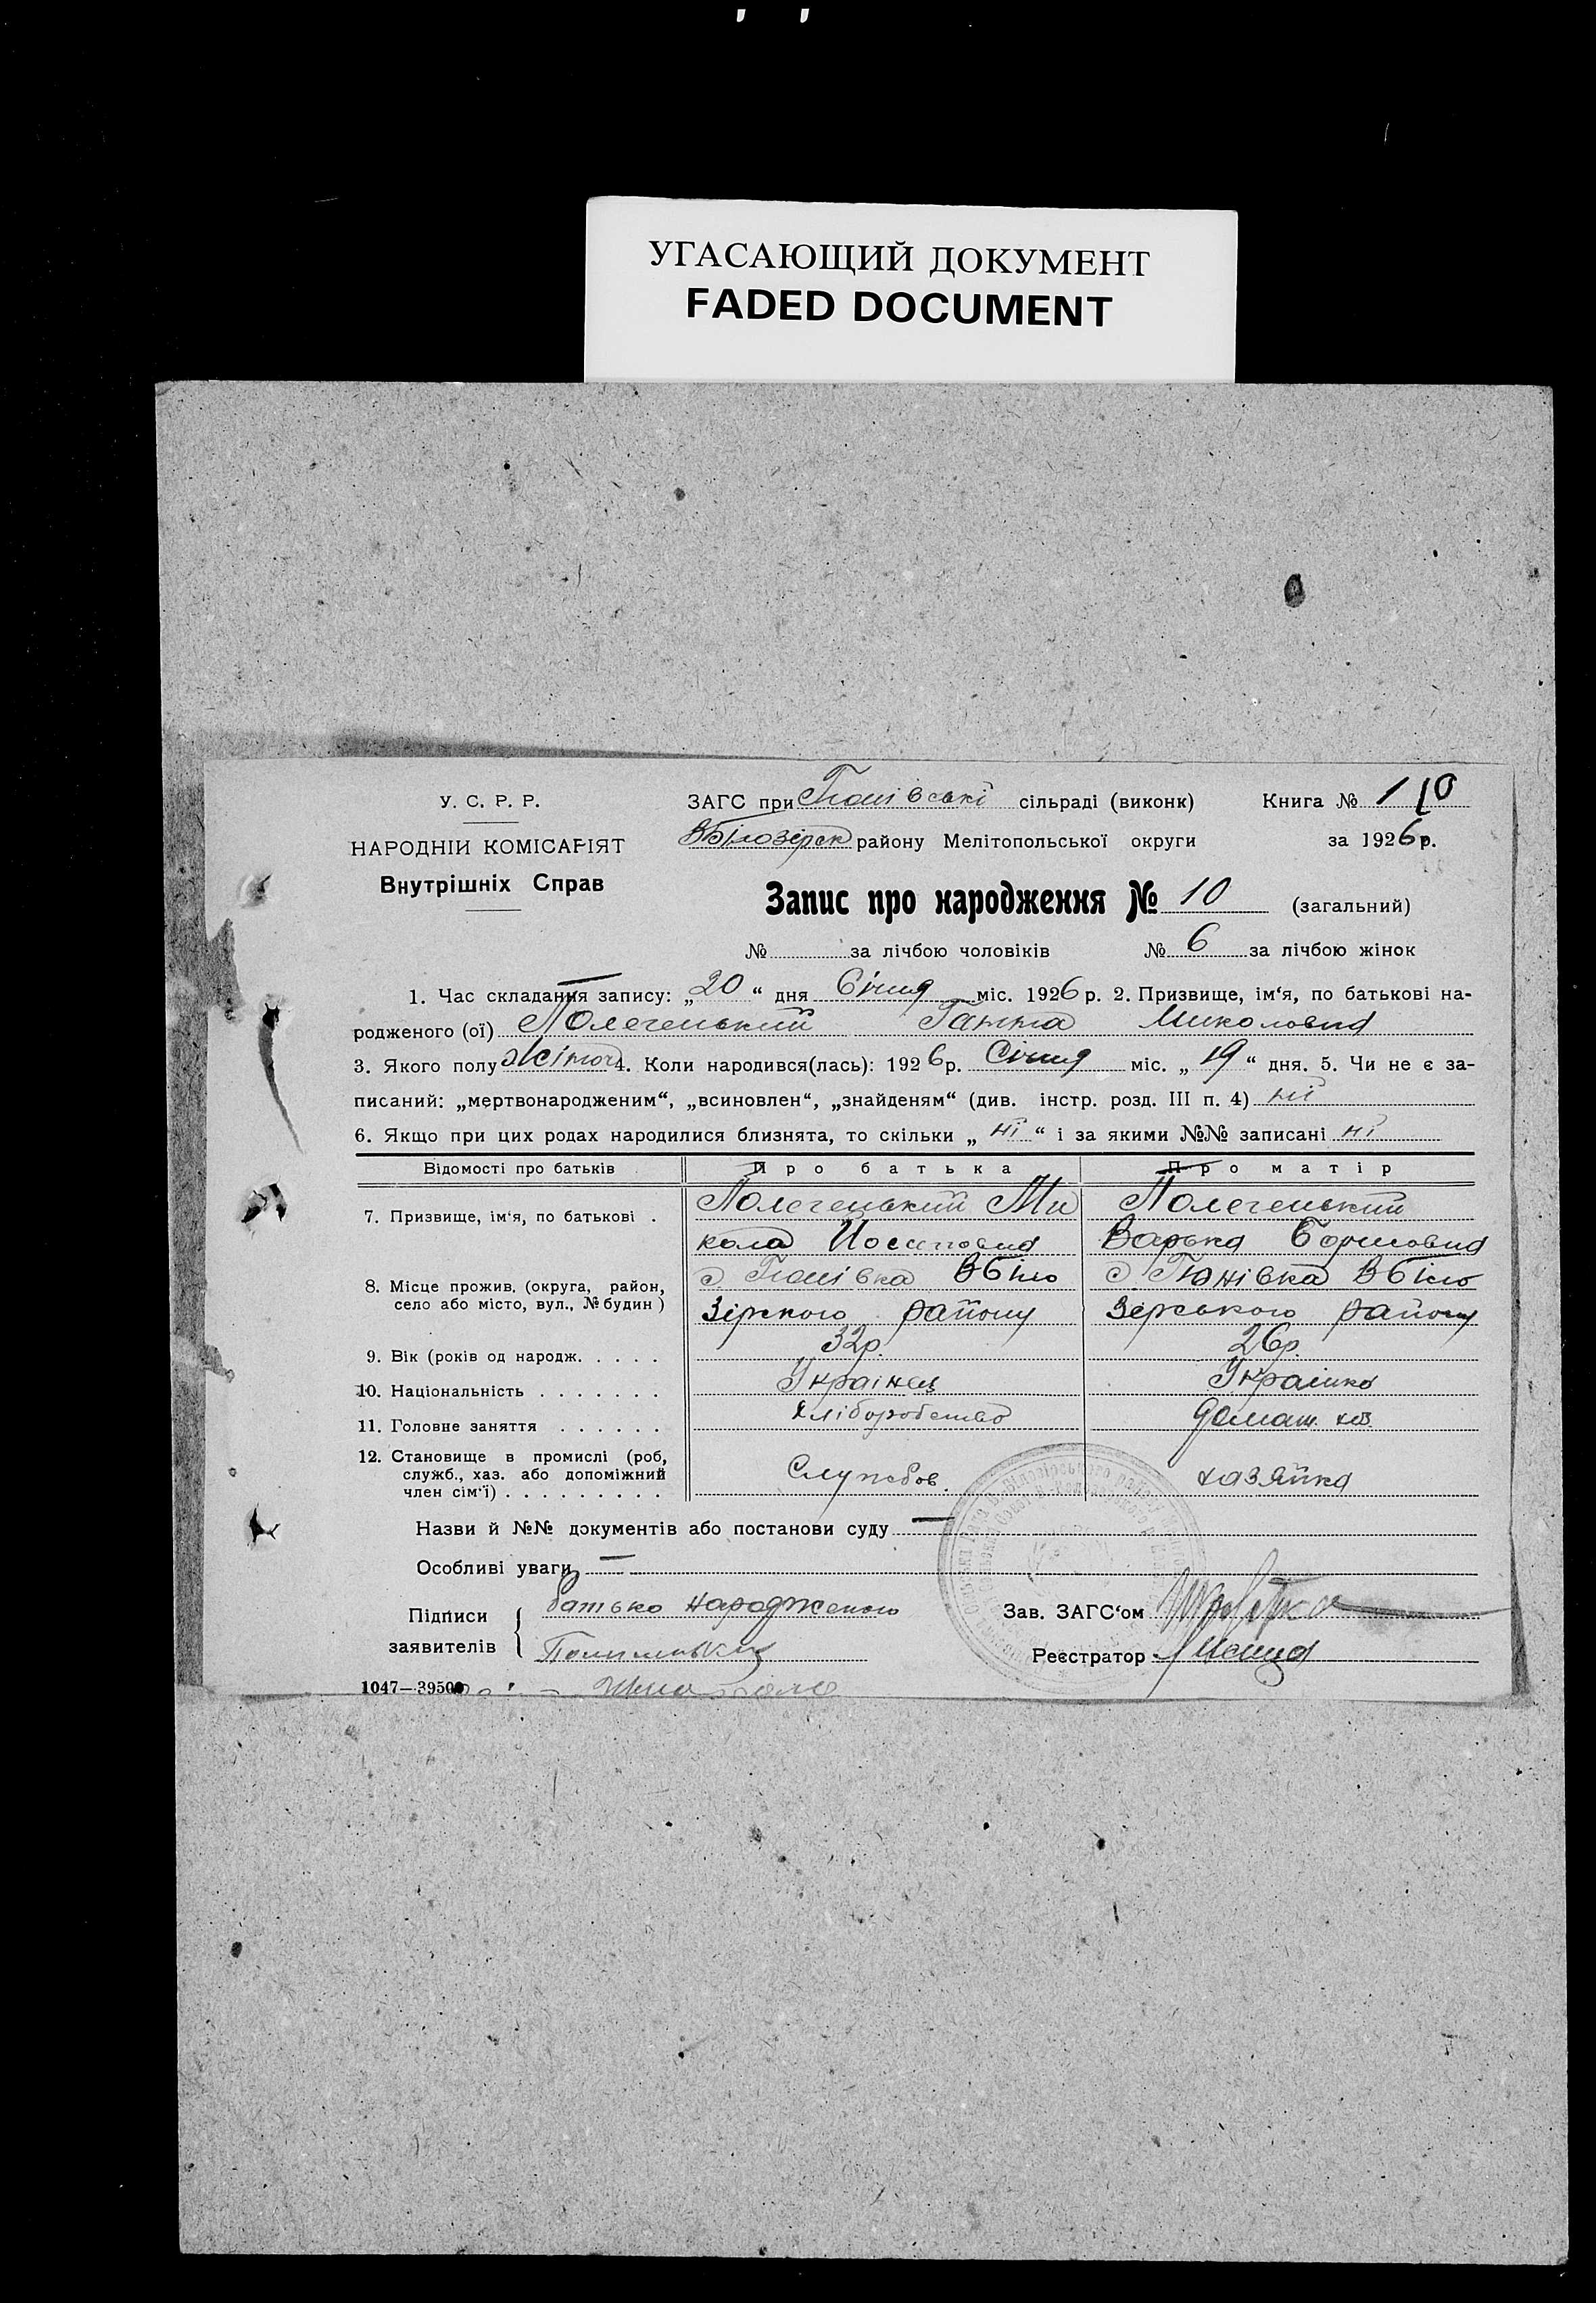 УГАСАЮЩИЙ ДОКУМЕНТ
FADED DOCUMENT
У. С. Р. Р.
НАРОДНІЙ КОМІСАРІЯТ
Внутрішніх Справ
ЗАГС при сільраді (виконк)
ВБілозірск району Мелітопольської округи
Книга № 1
10
за 1926 р.
Запис про народження № 10 (загальний)
№ за лічбою чоловіків № 6 за лічбою жінок
1. Час складання запису: „20“ дня Січня міс. 1926 р. 2. Призвище, ім‘я, по батькові на-
родженого (ої) Полегенький Ганна Миколовна
3. Якого полу жіноч 4. Коли народився(лась): 1926 р. Січня міс. „19“ дня. 5. Чи не є за-
писаний: „мертвонародженим“, „всиновлен“, „знайденям“ (див. інстр. розд. III п. 4) ні
6. Якщо при цих родах народилися близнята, то скільки „ні“ і за якими №№ записані ні
Відомості про батьків Про батька Про матір
7. Призвище, ім‘я, по батькові . Полегенький Ми Полегенький
кола Йосиповид Варька
8. Місце прожив. (округа, район, с. Гюнівка ВБіло с. Гюнівка ВБіло
село або місто, вул., № будин) зірского району зерського району
9. Вік (років од народж. . . . . 32р. 26р.
10. Національність . . . . . . . Українец Українка
11. Головне заняття . . . . . . хліборобство домаш. хоз.
12. Становище в промислі (роб,
служб., хаз. або допоміжний Службов. хазяйка
член сім‘ї) . . . . . . . . .
Назви й №№ документів або постанови суду —
Особливі уваги —
Підписи батько народженого
заявителів
Зав. ЗАГС‘ом
Реєстратор
1047—39500